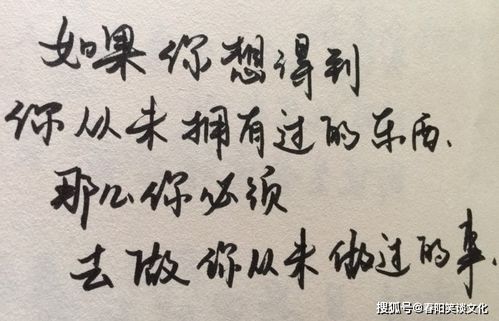 如果你想得到
你从未拥有过的东西.
那么你必须
去做你从未做过的事.
搜狐号@春阳笑谈文化